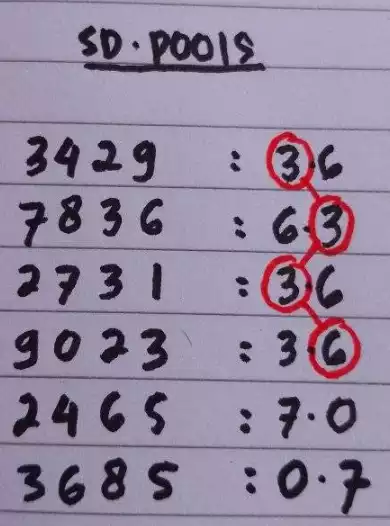 SD.POOLS
3429 : 3.6
7836 : 6.3
2731 : 3.6
9023 : 3.6
2465 : 7.0
3685 : 0.7